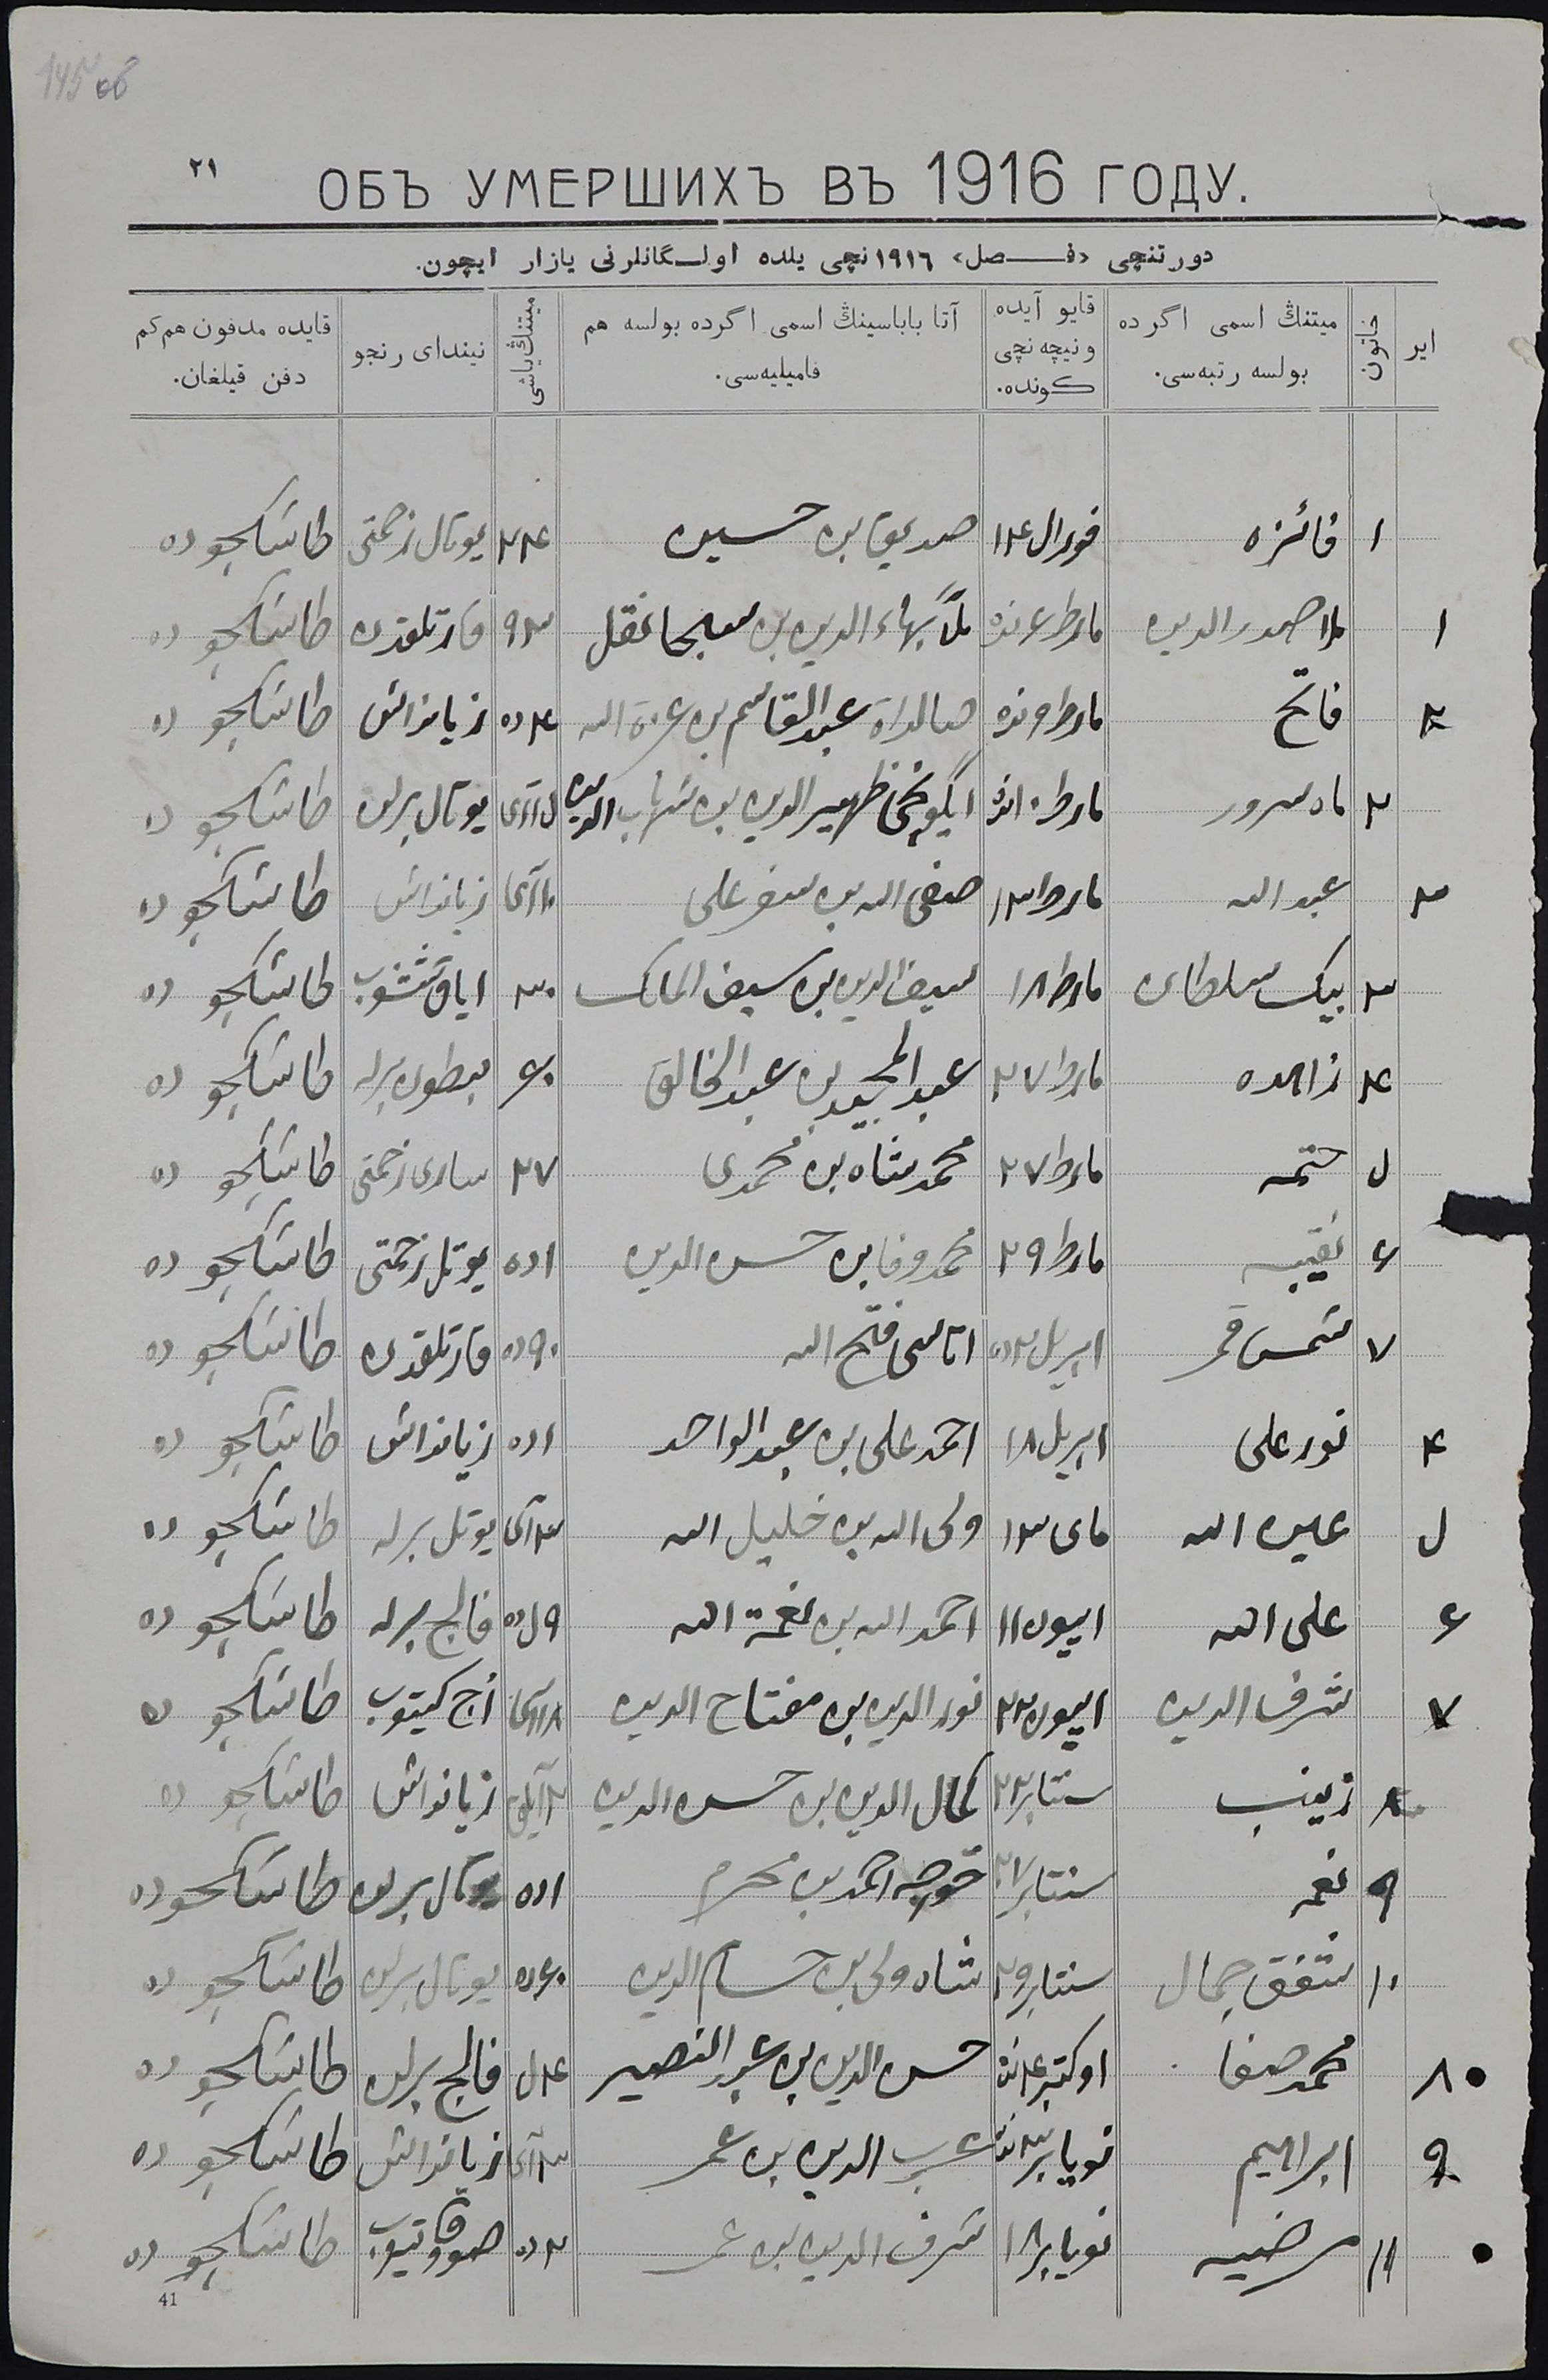 145 об
٢١
ОБЪ УМЕРШИХЪ ВЪ 1916 ГОДУ.
دورتنچی «فـــصل» ١٩١٦نچی یلده اولـگانلرنی یازار ایچون.
ایر
خاتون
میتنڭ اسمی اگرده بولسه رتبه‌سی.
قایو آیده و نیچه نچی کونده.
آتا باباسینڭ اسمی اگرده بولسه هم فامیلیه‌سی.
میتنڭ یاشی
نیندای رنجو
قایده مدفون هم کم دفن قیلغان.
١ فائزه فورال ١٤ صدیق بن حسین ٢٤ یوتال زحمتی طاشکچوده
١ ملا صدرالدین مارط ٤ نده ملا بهاءالدین بن ٩٣ قارتلقدن طاشکچوده
٢ فاتح مارط ٩ نده عبدالقاسم بن عزةالله ٤ ده زیانداش طاشکچوده
٢ ماه سرور مارط ١٠ نده ظهیرالدین بن شهاب الدین ٥ آی یوتال برلن طاشکچوده
٣ عبدالله مارط ١٣ صفی الله بن سفرعلی ١٠ آی زیانداش طاشکچوده
٣ بیک سلطان مارط ١٨ سیف الدین بن سیف الملک ٣٠ ایاق ششوب طاشکچوده
٤ زاهده مارط ٢٧ عبدالمجید بن عبدالخالق ٦٠ برله طاشکچوده
٥ ختمه مارط ٢٧ محمدشاه بن محمدی ٢٧ ساری زحمتی طاشکچوده
٦ نقیبه مارط ٢٩ محمدوفا بن حسن الدین ١ ده یوتل زحمتی طاشکچوده
٧ شمس قمر اپریل ٣ ده اتاسی فتح الله ٩٠ ده قارتلقدن طاشکچوده
٤ نورعلی اپریل ١٨ احمدعلی بن عبدالواحد ١ ده زیانداش طاشکچوده
٥ عین الله مای ١٣ ولی الله بن خلیل الله ٣ آی یوتل برله طاشکچوده
٦ علی الله اییون ١١ احمدالله بن نعمة الله ٥٩ ده فالج برله طاشکچوده
٧ شرف الدین اییون ٢٢ نورالدین بن مفتاح الدین ٨ آی اچ کیتوب طاشکچوده
٨ زینب سنتابر ٢٢ کمال الدین بن حسن الدین ٢ آیلق زیانداش طاشکچوده
٩ نعمه سنتابر ٢٧ خوجه احمد بن محرم ١ ده یوتال برلن طاشکچوده
١٠ شفق جمال سنتابر ٢٩ شاه ولی بن حسام الدین ٦٠ ده یوتال برلن طاشکچوده
٨ محمد صفا اوکتبر ٤ نده حسن الدین بن عبدالنصیر ٥٤ فالج برلن طاشکچوده
٩ ابراهیم نویابر ٣ نده عرب الدین بن عمر ٣ آی زیانداش طاشکچوده
١١ مرضیه نویابر ١٨ شرف الدین بن عمر ٣ ده طاشکچوده
41